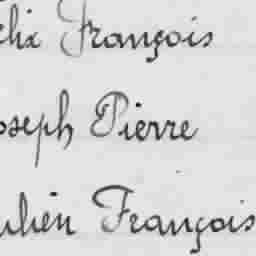 élix François
oseph Pierre
ulien François